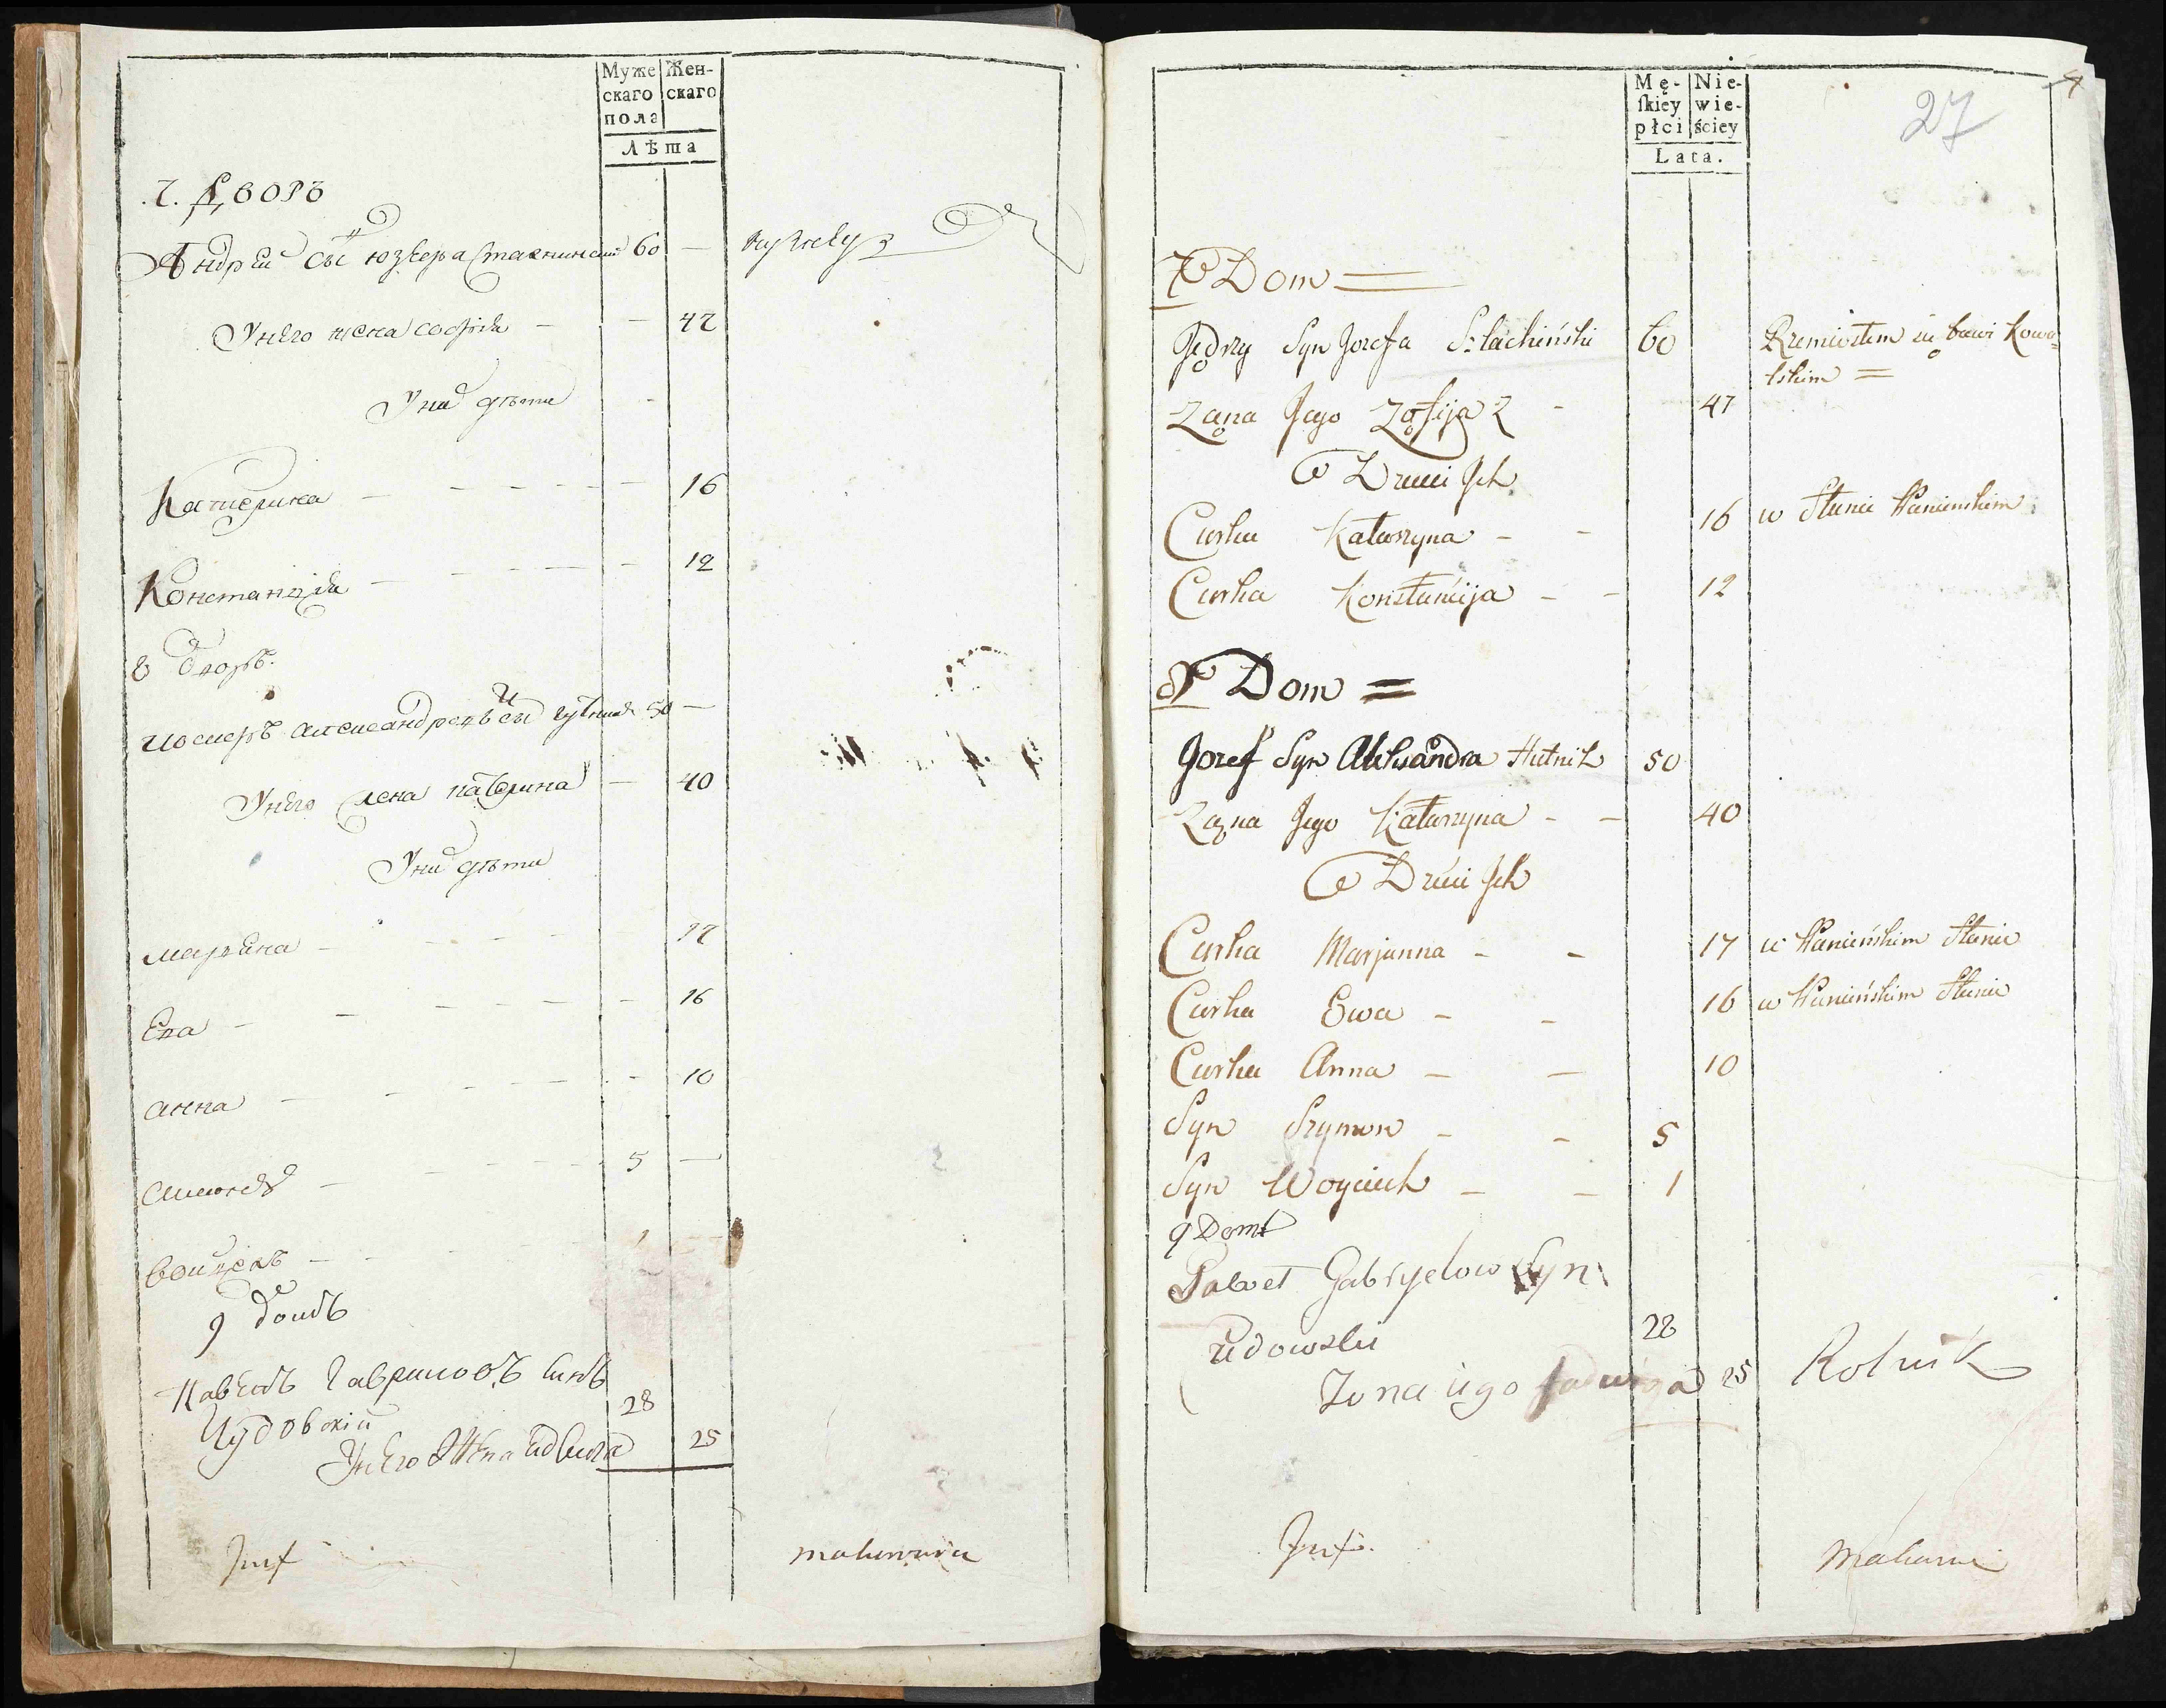 Муже
скаго
пола
Жен-
скаго
Лѣта
7. Дворъ
Андрей сы Юзвера 60 —
Унего жена софія — — 47
Уни дѣти -
Катерина — 16
Констанція — 12
8 дворъ.
александровъ сы 50 —
Унего жена катерина — 40
Уни дѣти
марьяна — 17
Ева — 16
анна — 10
симонъ — 5 —
войцехъ — 1
9 домъ
Павелъ Гавриловъ синъ
Чудовскій 28
Унего Жена Едвига 25
Mę-
ſkiey
płci
Nie-
wie-
ściey
Lata.
27
7 Dom =
Jędrzy Syn Jozefa S:lachiński 60 Rzemiosłem się bawi Kowa=
lskim =
Zana Jego Zofija - 47
Dzieci Jch
Curka Katarzyna - - 16 w Stanie Panienskim
Curka Konstancija - - 12
8 Dom =
Jozef Syn Aleksandra Hutnik 50
Zana Jego Katarzyna - - 40
Dzieci Jch
Curka Marjanna - - 17 w Panieńskim Stanie
Curka Ewa - - 16 w Panieńskim Stanie
Curka Anna - — 10
Syn Szymon - - 5
Syn Woyciech - - 1
9 Domt
Pawet Gabryelow Syn
Udowski 28
Zona iego Jadwiga 25 Rolnik